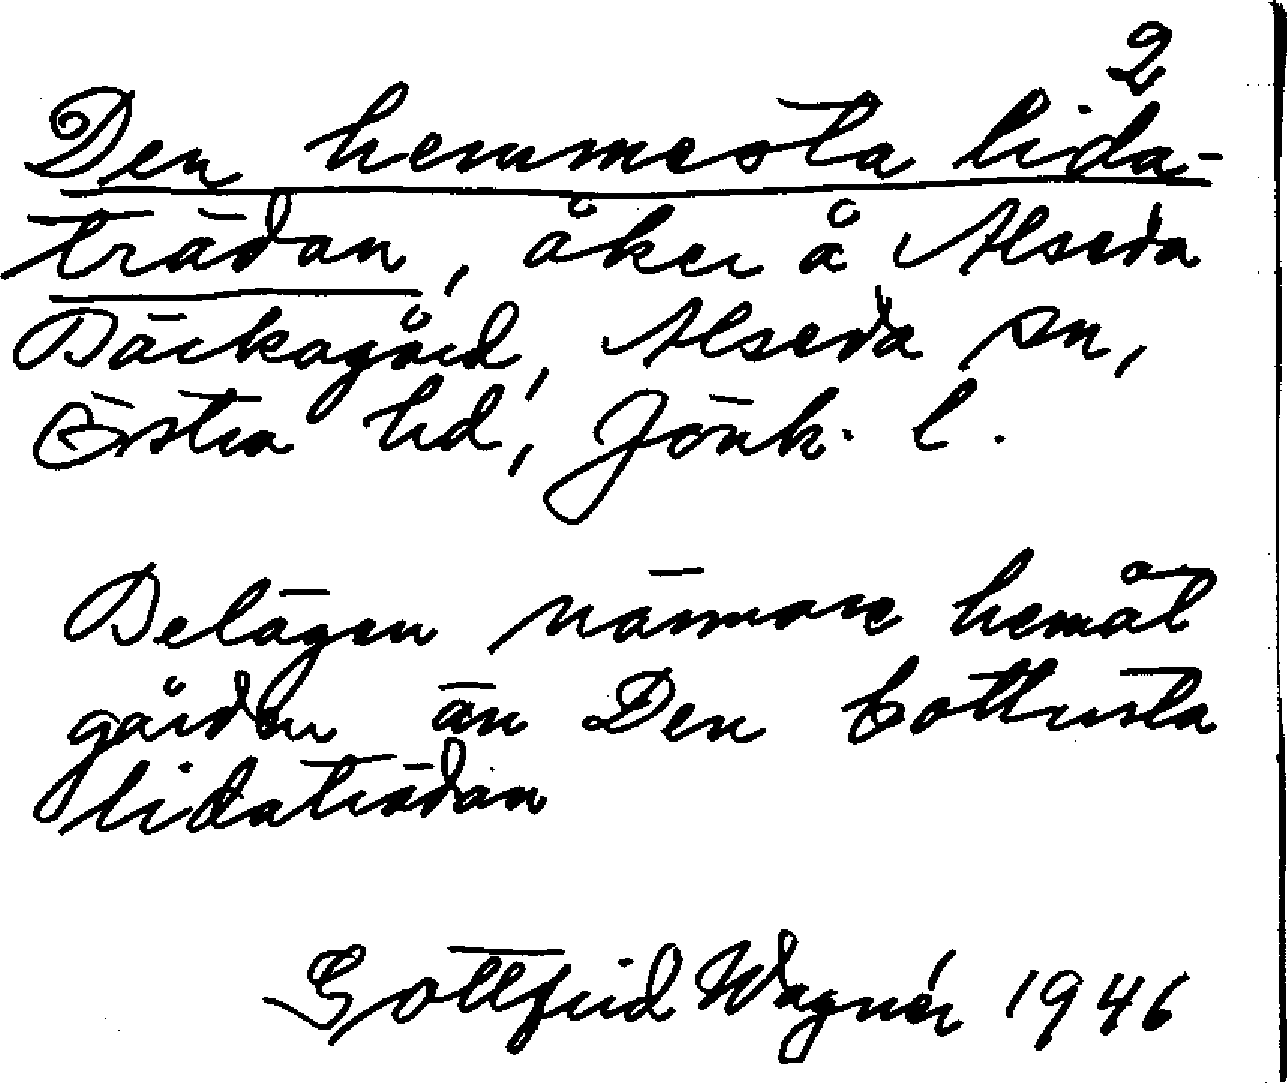 2
Den hemmesta lida-
trädan, åker å Alseda
Bäckagård, Alseda sn,
Östra hd, Jönk. l.
Belägen närmare hemåt
gården än Den bottersta
lidaträdan
Gottfrid Wagnér 1946